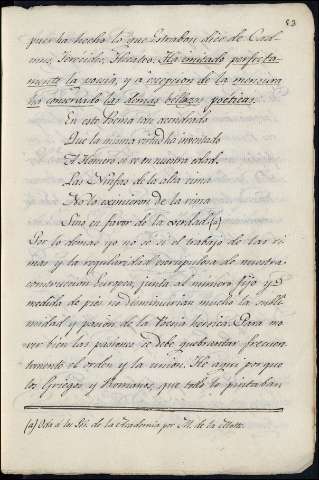 83
pues ha hecho lo que Estrabon dice de Cad-
mus, Ferecides, Hecateo. Ha imitado perfecta-
mente la poesia, y á excepcion de la mensura
ha conservado las demas bellezas poéticas.
En este Poema tan acendrado
Que la misma virtud ha inventado
El Homero se ve en nuestra edad.
Las Ninfas de la alta cima
No lo eximieron de la rima
Sino en favor de la verdad (a)
Por lo demas yo no se si el trabajo de las ri-
mas y la regularidad escrupulosa de nuestra
construccion Europea, junta al numero fijo y
medida de pies no disminuirian mucho la subli-
midad y pasion de la Poesia heroica. Para mo-
ver bien las pasiones se debe quebrantar frecuen-
temente el orden y la union. He aqui por que
los Griegos y Romanos, que todo lo pintaban
(a) Oda á los SS. de la Academia por M. de la Motte.